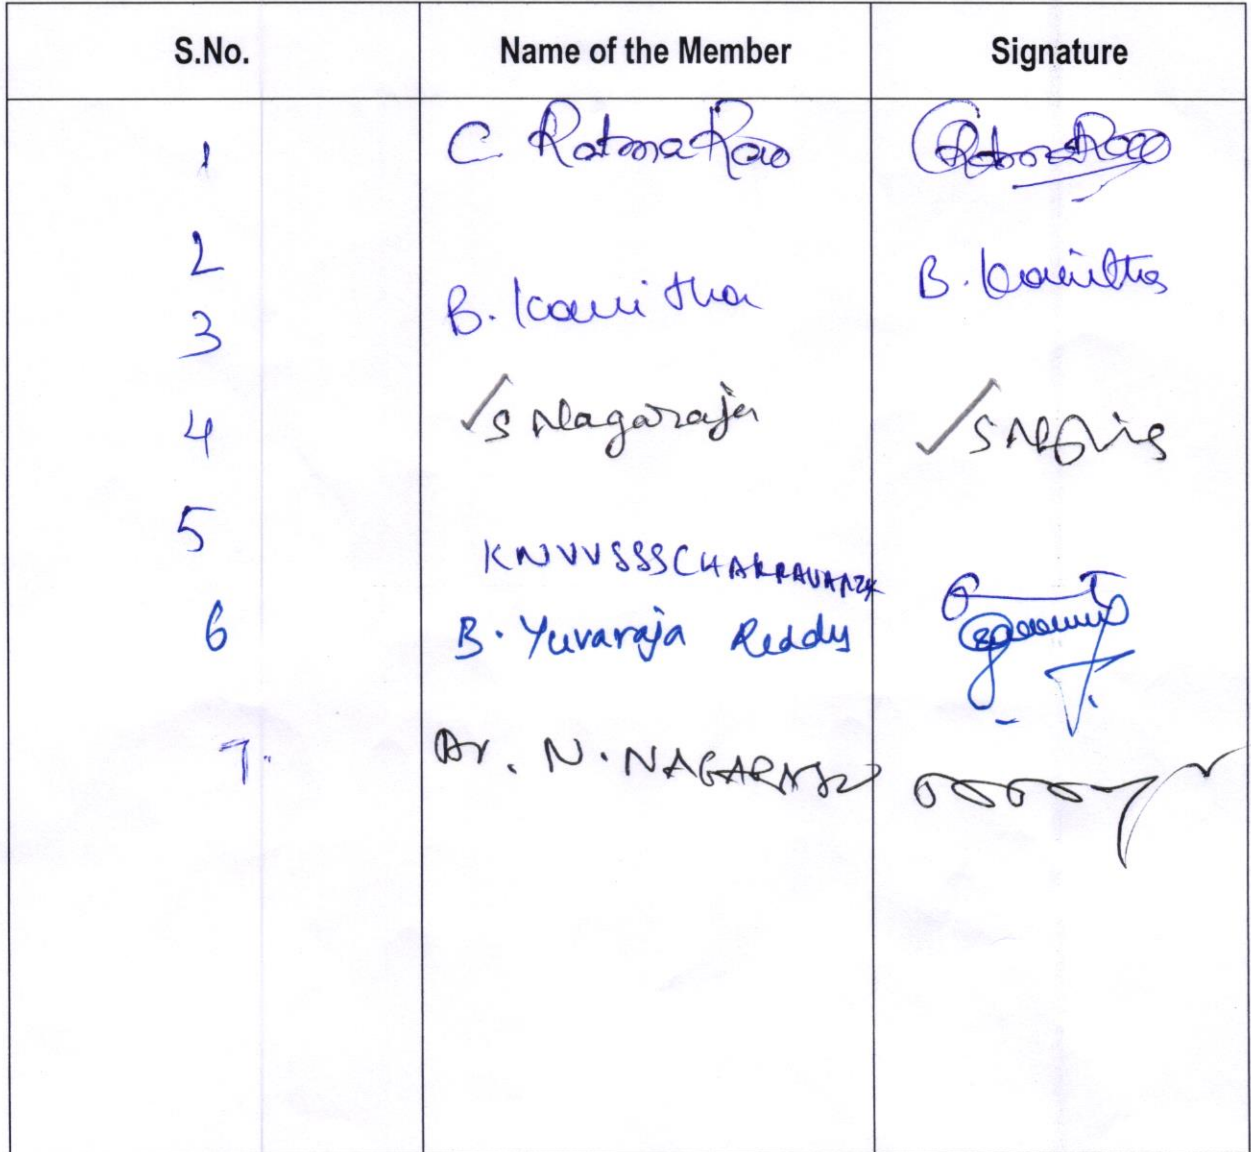 S.No. Name of the Member Signature
1 C. Ratna Rao Ratna Rao
2
B. Kavitha B. Kavitha
3
4 S Nagaraja
5
KNVVSSSCHAKRAVARTY
6 B. Yuvaraja Reddy
7. Dr. N. NAGARAJU